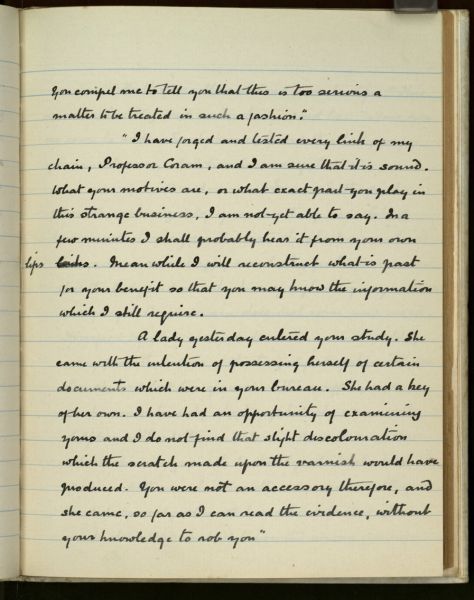 You compel me to tell you that this is too serious a
matter to be treated in such a fashion."
"I have forged and tested every link of my
chain, Professor Coram, and I am sure that it is sound.
What your motives are, or what exact part you play in
this strange business, I am not yet able to say. In a
few minutes I shall probably hear it from your own
lips. Meanwhile I will reconstruct what is past
for your benefit so that you may know the information
which I still require.
A lady yesterday entered your study. She
came with the intention of possessing herself of certain
documents which were in your bureau. She had a key
of her own. I have had an opportunity of examining
yours and I do not find that slight discolouration
which the scratch made upon the varnish would have
produced. You were not an accessory therefore, and
she came, so far as I can read the evidence, without
your knowledge to rob you"